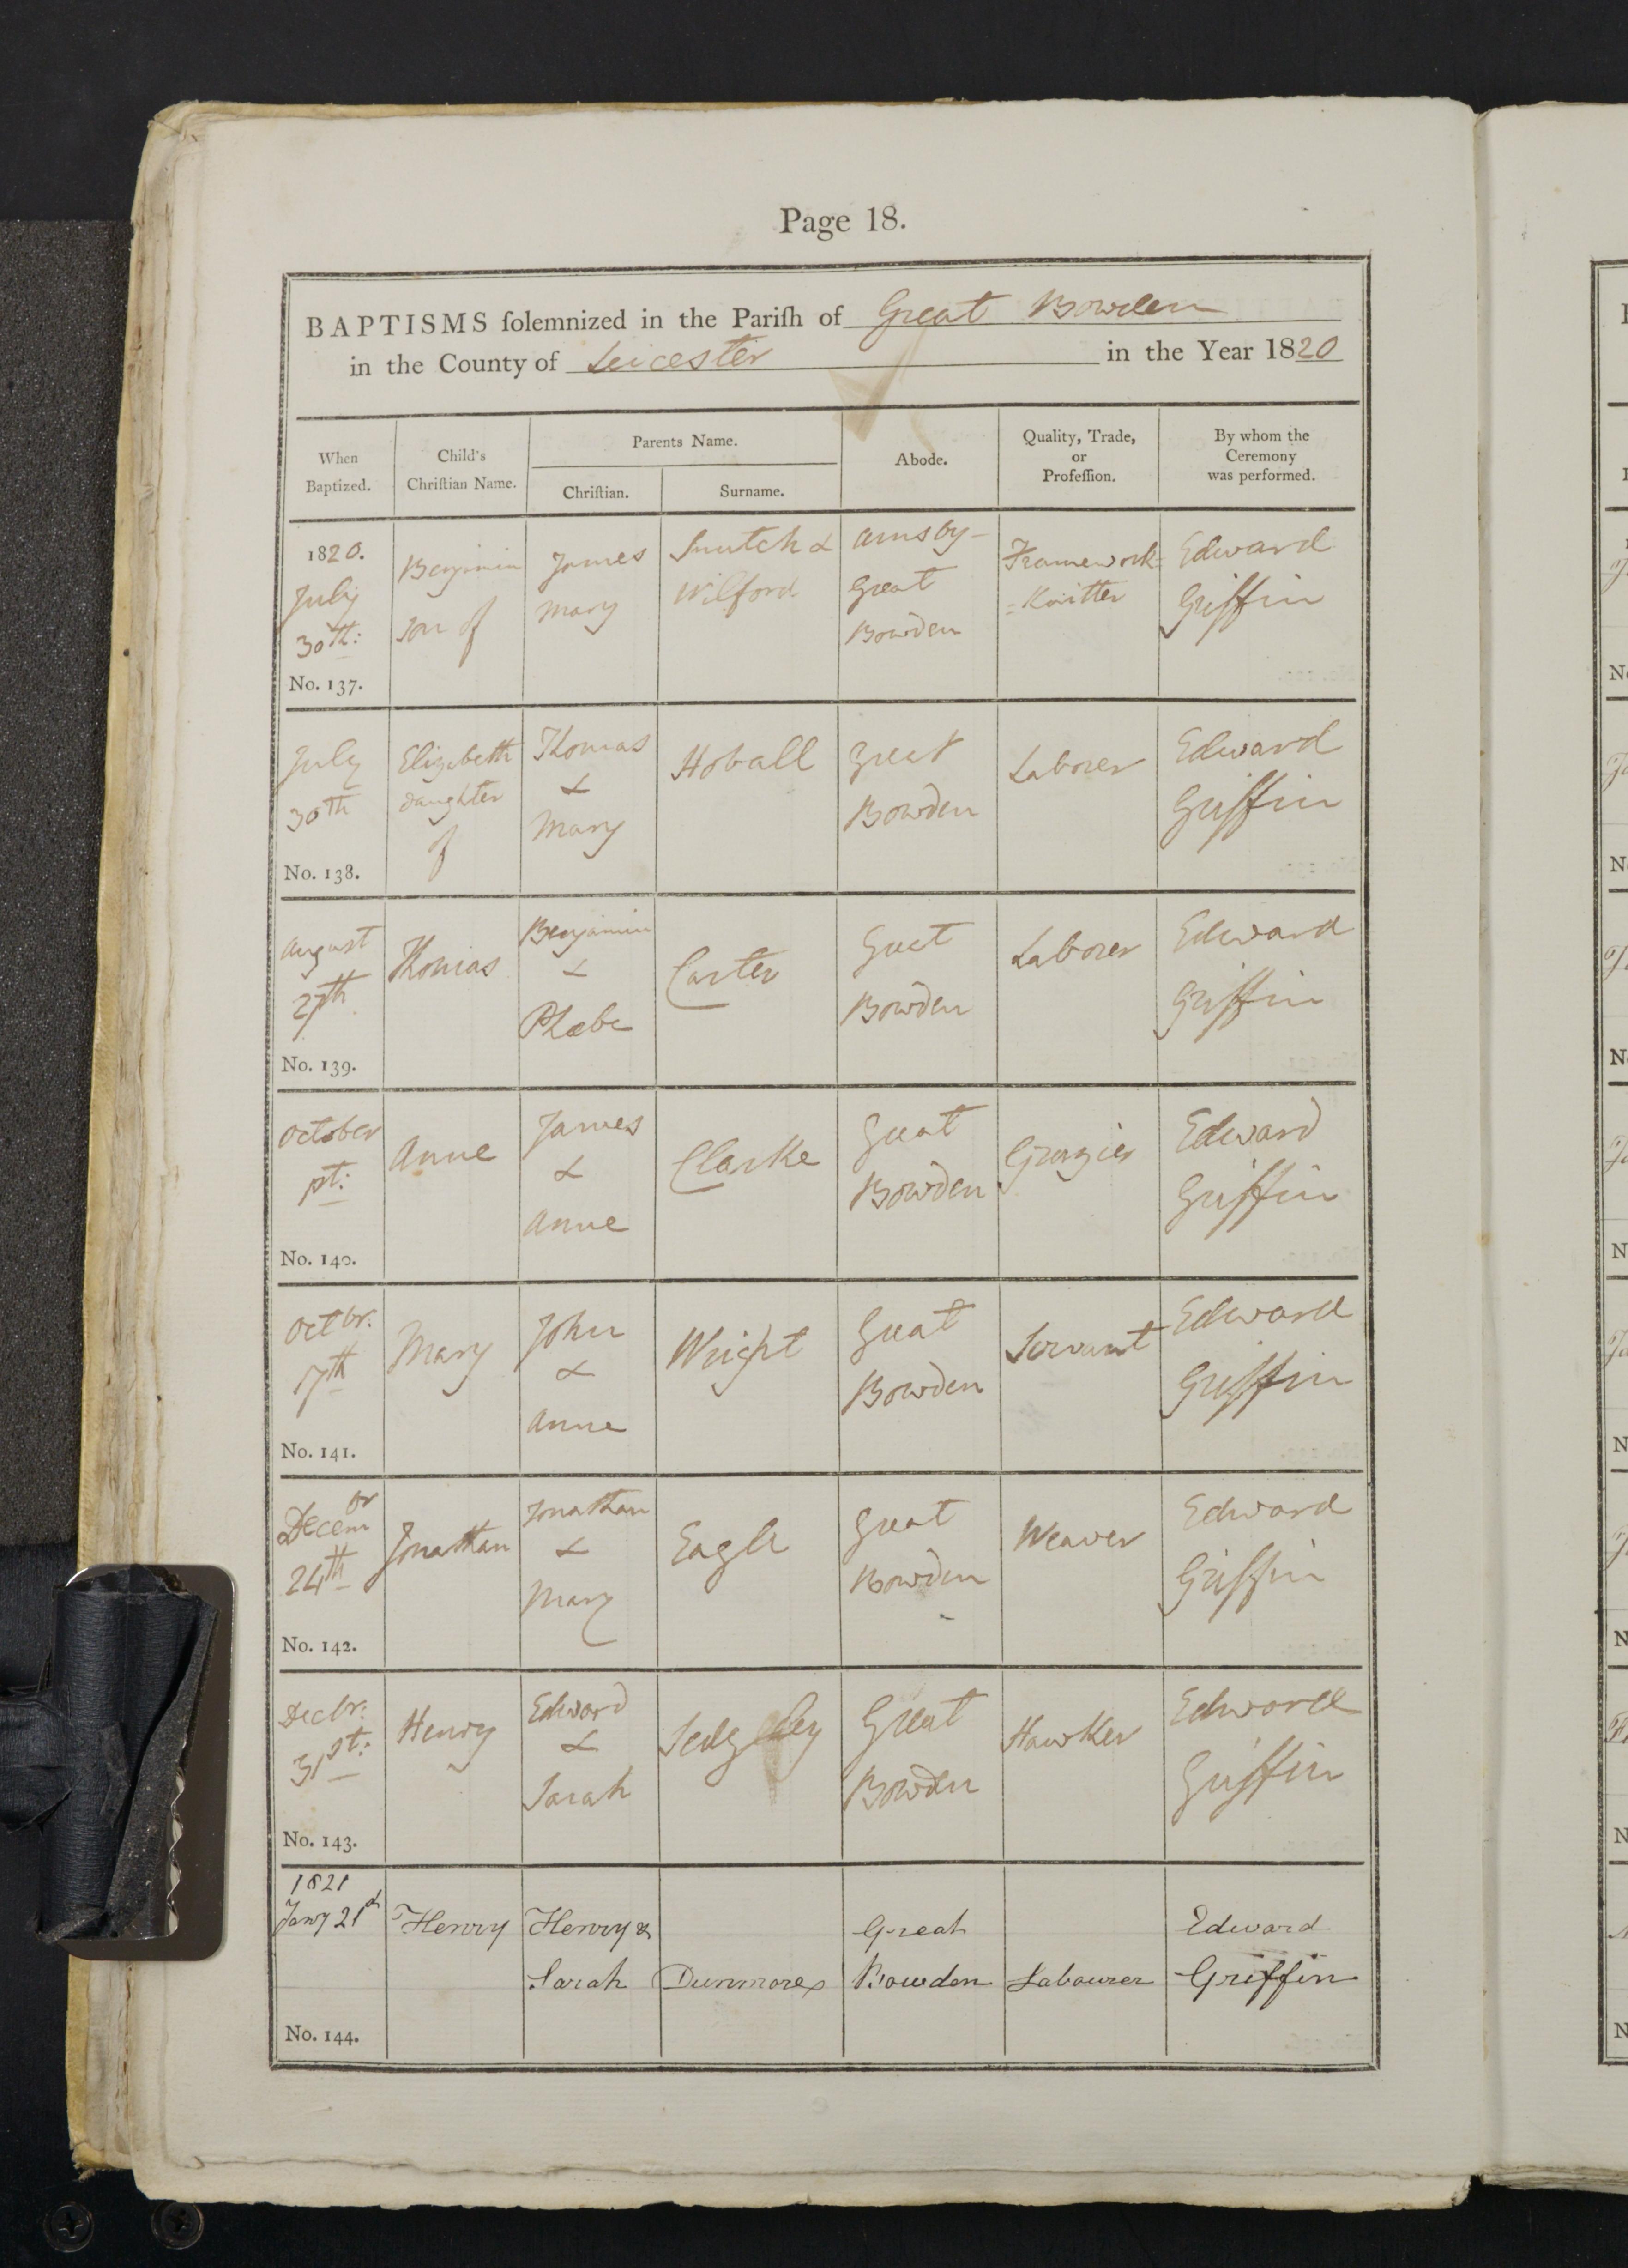 Page 18.
BAPTISMS ſolemnized in the Pariſh of Great Bowden
in the County of Leicester in the Year 1820
When
Baptized.
Child's
Chriſtian Name.
Parents Name.
Chriſtian.
Surname.
Abode.
Quality, Trade,
or
Profeſſion.
By whom the
Ceremony
was performed.
1820.
July
30th:
No. 137.
Benjimin
son of
James
Mary
&
Wilford
Arnsby-
Great
Bowden
Framework=
=Knitter
Edward
Griffin
July
30th
No. 138.
Elizabeth
daughter
of
Thomas
&
Mary
Hoball
Great
Bowden
Laborer
Edward
Griffin
August
27th
No. 139.
Thomas
Benjamin
&
Phœbe
Carter
Great
Bowden
Laborer
Edward
Griffin
October
1st:
No. 140.
Anne
James
&
Anne
Clarke
Great
Bowden
Grazier
Edward
Griffin
Octbr.
17th
No. 141.
Mary
John
&
Anne
Wright
Great
Bowden
Servant
Edward
Griffin
Decembr
24th
No. 142.
Jonathan
Jonathan
&
Mary
Eagle
Great
Bowden
Weaver
Edward
Griffin
Decbr:
31st:
No. 143.
Henry
Edward
&
Sarah
Sedgley
Great
Bowden
Hawker
Edward
Griffin
1821
Jany 21st
No. 144.
Henry
Henry &
Sarah
Dunmore
Great
Bowden
Labourer
Edward
Griffin